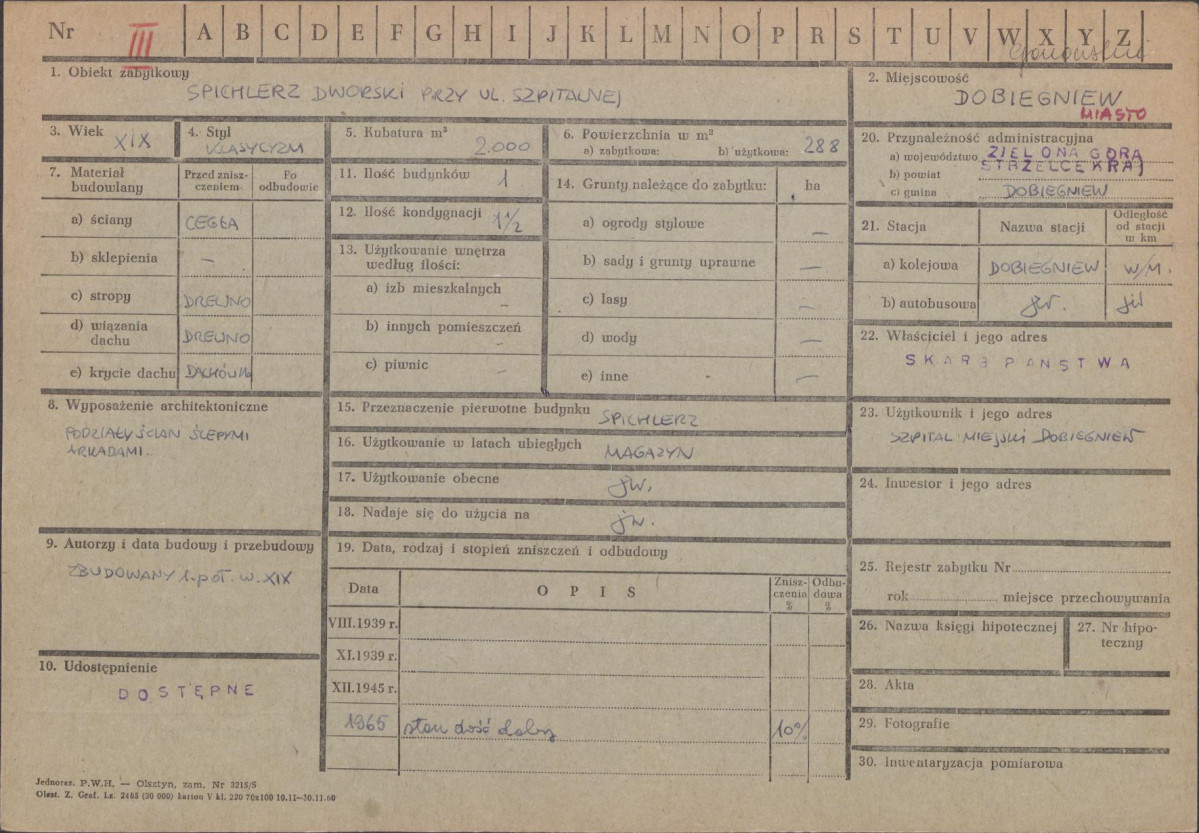 Nr III A B C D E F G H I J K L M N O P R S T U V W X Y Z
1. Obiekt zabytkowy
SPICHLERZ DWORSKI PRZY UL. SZPITALNEJ
2. Miejscowość
DOBIEGNIEW
MIASTO
3. Wiek XIX
4. Styl
KLASYCYZM
5. Kubatura m³
2.000
6. Powierzchnia w m²
a) zabytkowa: b) użytkowa: 288
20. Przynależność administracyjna
a) województwo ZIELONA GÓRA
b) powiat STRZELCE KRAJ
c) gmina DOBIEGNIEW
7. Materiał budowlany
Przed znisz-
czeniem
Po
odbudowie
a) ściany CEGŁA
b) sklepienia —
c) stropy DREWNO
d) wiązania
dachu DREWNO
e) krycie dachu DACHÓWKA
11. Ilość budynków 1
12. Ilość kondygnacji 1 1/2
13. Użytkowanie wnętrza
według ilości:
a) izb mieszkalnych –
b) innych pomieszczeń –
c) piwnic –
14. Grunty należące do zabytku: ha
a) ogrody stylowe —
b) sady i grunty uprawne —
c) lasy —
d) wody —
e) inne - —
21. Stacja Nazwa stacji
Odległość
od stacji
w km
a) kolejowa DOBIEGNIEW W/M.
b) autobusowa jw. jw
22. Właściciel i jego adres
SKARB PAŃSTWA
8. Wyposażenie architektoniczne
PODZIAŁY ŚCIAN ŚLEPYMI
ARKADAMI.
15. Przeznaczenie pierwotne budynku SPICHLERZ
16. Użytkowanie w latach ubiegłych MAGAZYN
17. Użytkowanie obecne jw.
18. Nadaje się do użycia na jw.
23. Użytkownik i jego adres
SZPITAL MIEJSKI DOBIEGNIEW
24. Inwestor i jego adres
9. Autorzy i data budowy i przebudowy
ZBUDOWANY 1. poł. w. XIX
19. Data, rodzaj i stopień zniszczeń i odbudowy
Data OPIS
Znisz-
czenia
%
Odbu-
dowa
%
VIII.1939 r.
XI.1939 r.
XII.1945 r.
1965 stan dość dobry 10%
25. Rejestr zabytku Nr
rok miejsce przechowywania
26. Nazwa księgi hipotecznej
27. Nr hipo-
teczny
10. Udostępnienie
DOSTĘPNE
28. Akta
29. Fotografie
30. Inwentaryzacja pomiarowa
Jednoraz. P.W.H. — Olsztyn, zam. Nr 3215/S
Olszt. Z. Graf. Lz. 2465 (30 000) karton V kl. 220 70x100 10.11—30.11.60